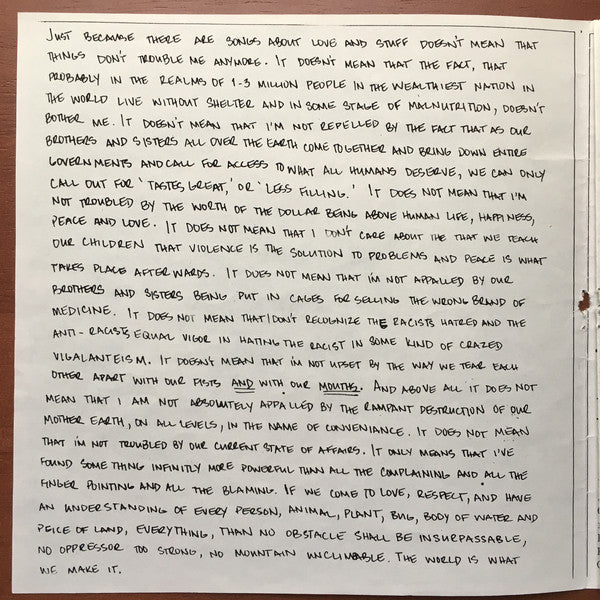 JUST BECAUSE THERE ARE SONGS ABOUT LOVE AND STUFF DOESN'T MEAN THAT
THINGS DON'T TROUBLE ME ANYMORE. IT DOESN'T MEAN THAT THE FACT, THAT
PROBABLY IN THE REALMS OF 1-3 MILLION PEOPLE IN THE WEALTHIEST NATION IN
THE WORLD LIVE WITHOUT SHELTER AND IN SOME STAGE OF MALNUTRITION, DOESN'T
BOTHER ME. IT DOESN'T MEAN THAT I'M NOT REPELLED BY THE FACT THAT AS OUR
BROTHERS AND SISTERS ALL OVER THE EARTH COME TOGETHER AND BRING DOWN ENTIRE
GOVERNMENTS AND CALL FOR ACCESS TO WHAT ALL HUMANS DESERVE, WE CAN ONLY
CALL OUT FOR 'TASTES GREAT,' OR 'LESS FILLING.' IT DOES NOT MEAN THAT I'M
NOT TROUBLED BY THE WORTH OF THE DOLLAR BEING ABOVE HUMAN LIFE, HAPPINESS,
PEACE AND LOVE. IT DOES NOT MEAN THAT I DON'T CARE ABOUT THE THAT WE TEACH
OUR CHILDREN THAT VIOLENCE IS THE SOLUTION TO PROBLEMS AND PEACE IS WHAT
TAKES PLACE AFTERWARDS. IT DOES NOT MEAN THAT I'M NOT APPALLED BY OUR
BROTHERS AND SISTERS BEING PUT IN CAGES FOR SELLING THE WRONG BRAND OF
MEDICINE. IT DOES NOT MEAN THAT I DON'T RECOGNIZE THE RACISTS HATRED AND THE
ANTI-RACISTS EQUAL VIGOR IN HATING THE RACIST IN SOME KIND OF CRAZED
VIGALANTEISM. IT DOESN'T MEAN THAT I'M NOT UPSET BY THE WAY WE TEAR EACH
OTHER APART WITH OUR FISTS AND WITH OUR MOUTHS. AND ABOVE ALL IT DOES NOT
MEAN THAT I AM NOT ABSOLUTELY APPALLED BY THE RAMPANT DESTRUCTION OF OUR
MOTHER EARTH, ON ALL LEVELS, IN THE NAME OF CONVENIANCE. IT DOES NOT MEAN
THAT I'M NOT TROUBLED BY OUR CURRENT STATE OF AFFAIRS. IT ONLY MEANS THAT I'VE
FOUND SOMETHING INFINITLY MORE POWERFUL THAN ALL THE COMPLAINING AND ALL THE
FINGER POINTING AND ALL THE BLAMING. IF WE COME TO LOVE, RESPECT, AND HAVE
AN UNDERSTANDING OF EVERY PERSON, ANIMAL, PLANT, BUG, BODY OF WATER AND
PEICE OF LAND, EVERYTHING, THAN NO OBSTACLE SHALL BE INSURPASSABLE,
NO OPPRESSOR TOO STRONG, NO MOUNTAIN UNCLIMBABLE. THE WORLD IS WHAT
WE MAKE IT.